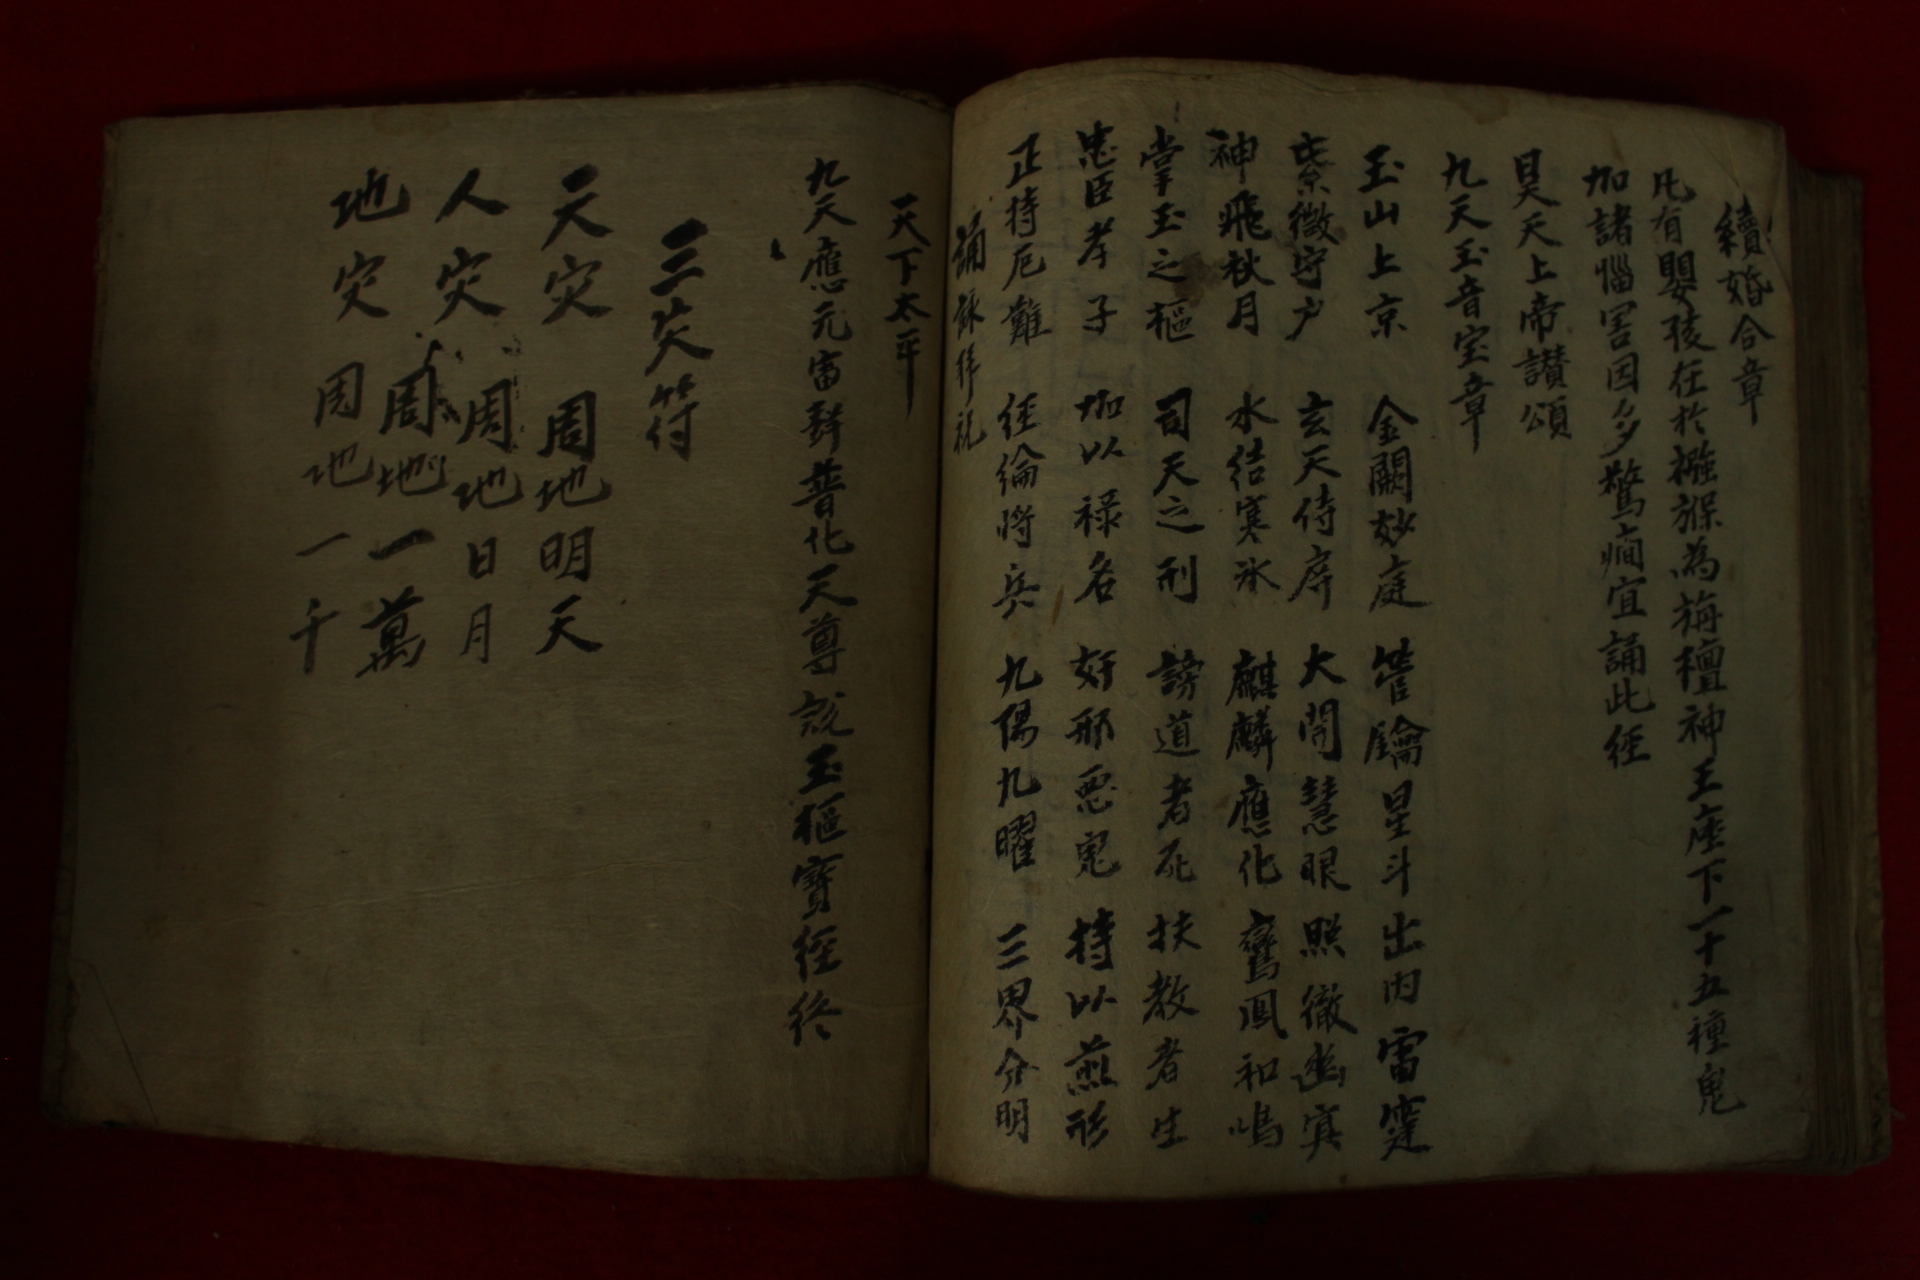 續婚合章
凡有嬰孩在於襁褓為旃檀神王座下一十五種鬼
加諸惱害因多驚癎宜誦此經
昊天上帝讚頌
九天玉音宝章
玉山上京 金闕妙庭 管鑰星斗 出內雷霆
紫微守户 玄天侍房 大開慧眼 照徹幽冥
神飛秋月 水结寒氷 麒麟應化 鸞鳳和鳴
掌玉之樞 司天之刑 謗道者死 扶教者生
忠臣孝子 加以禄名 奸邪惡鬼 持以煎形
正持厄難 征綸將兵 九陽九曜 三界分明
誦詠拜祝
天下太平
九天應元雷聲普化天尊說玉樞寶經終
三災符
天灾 周地明天
人灾 周地日月
周地一萬
地灾 周地一千